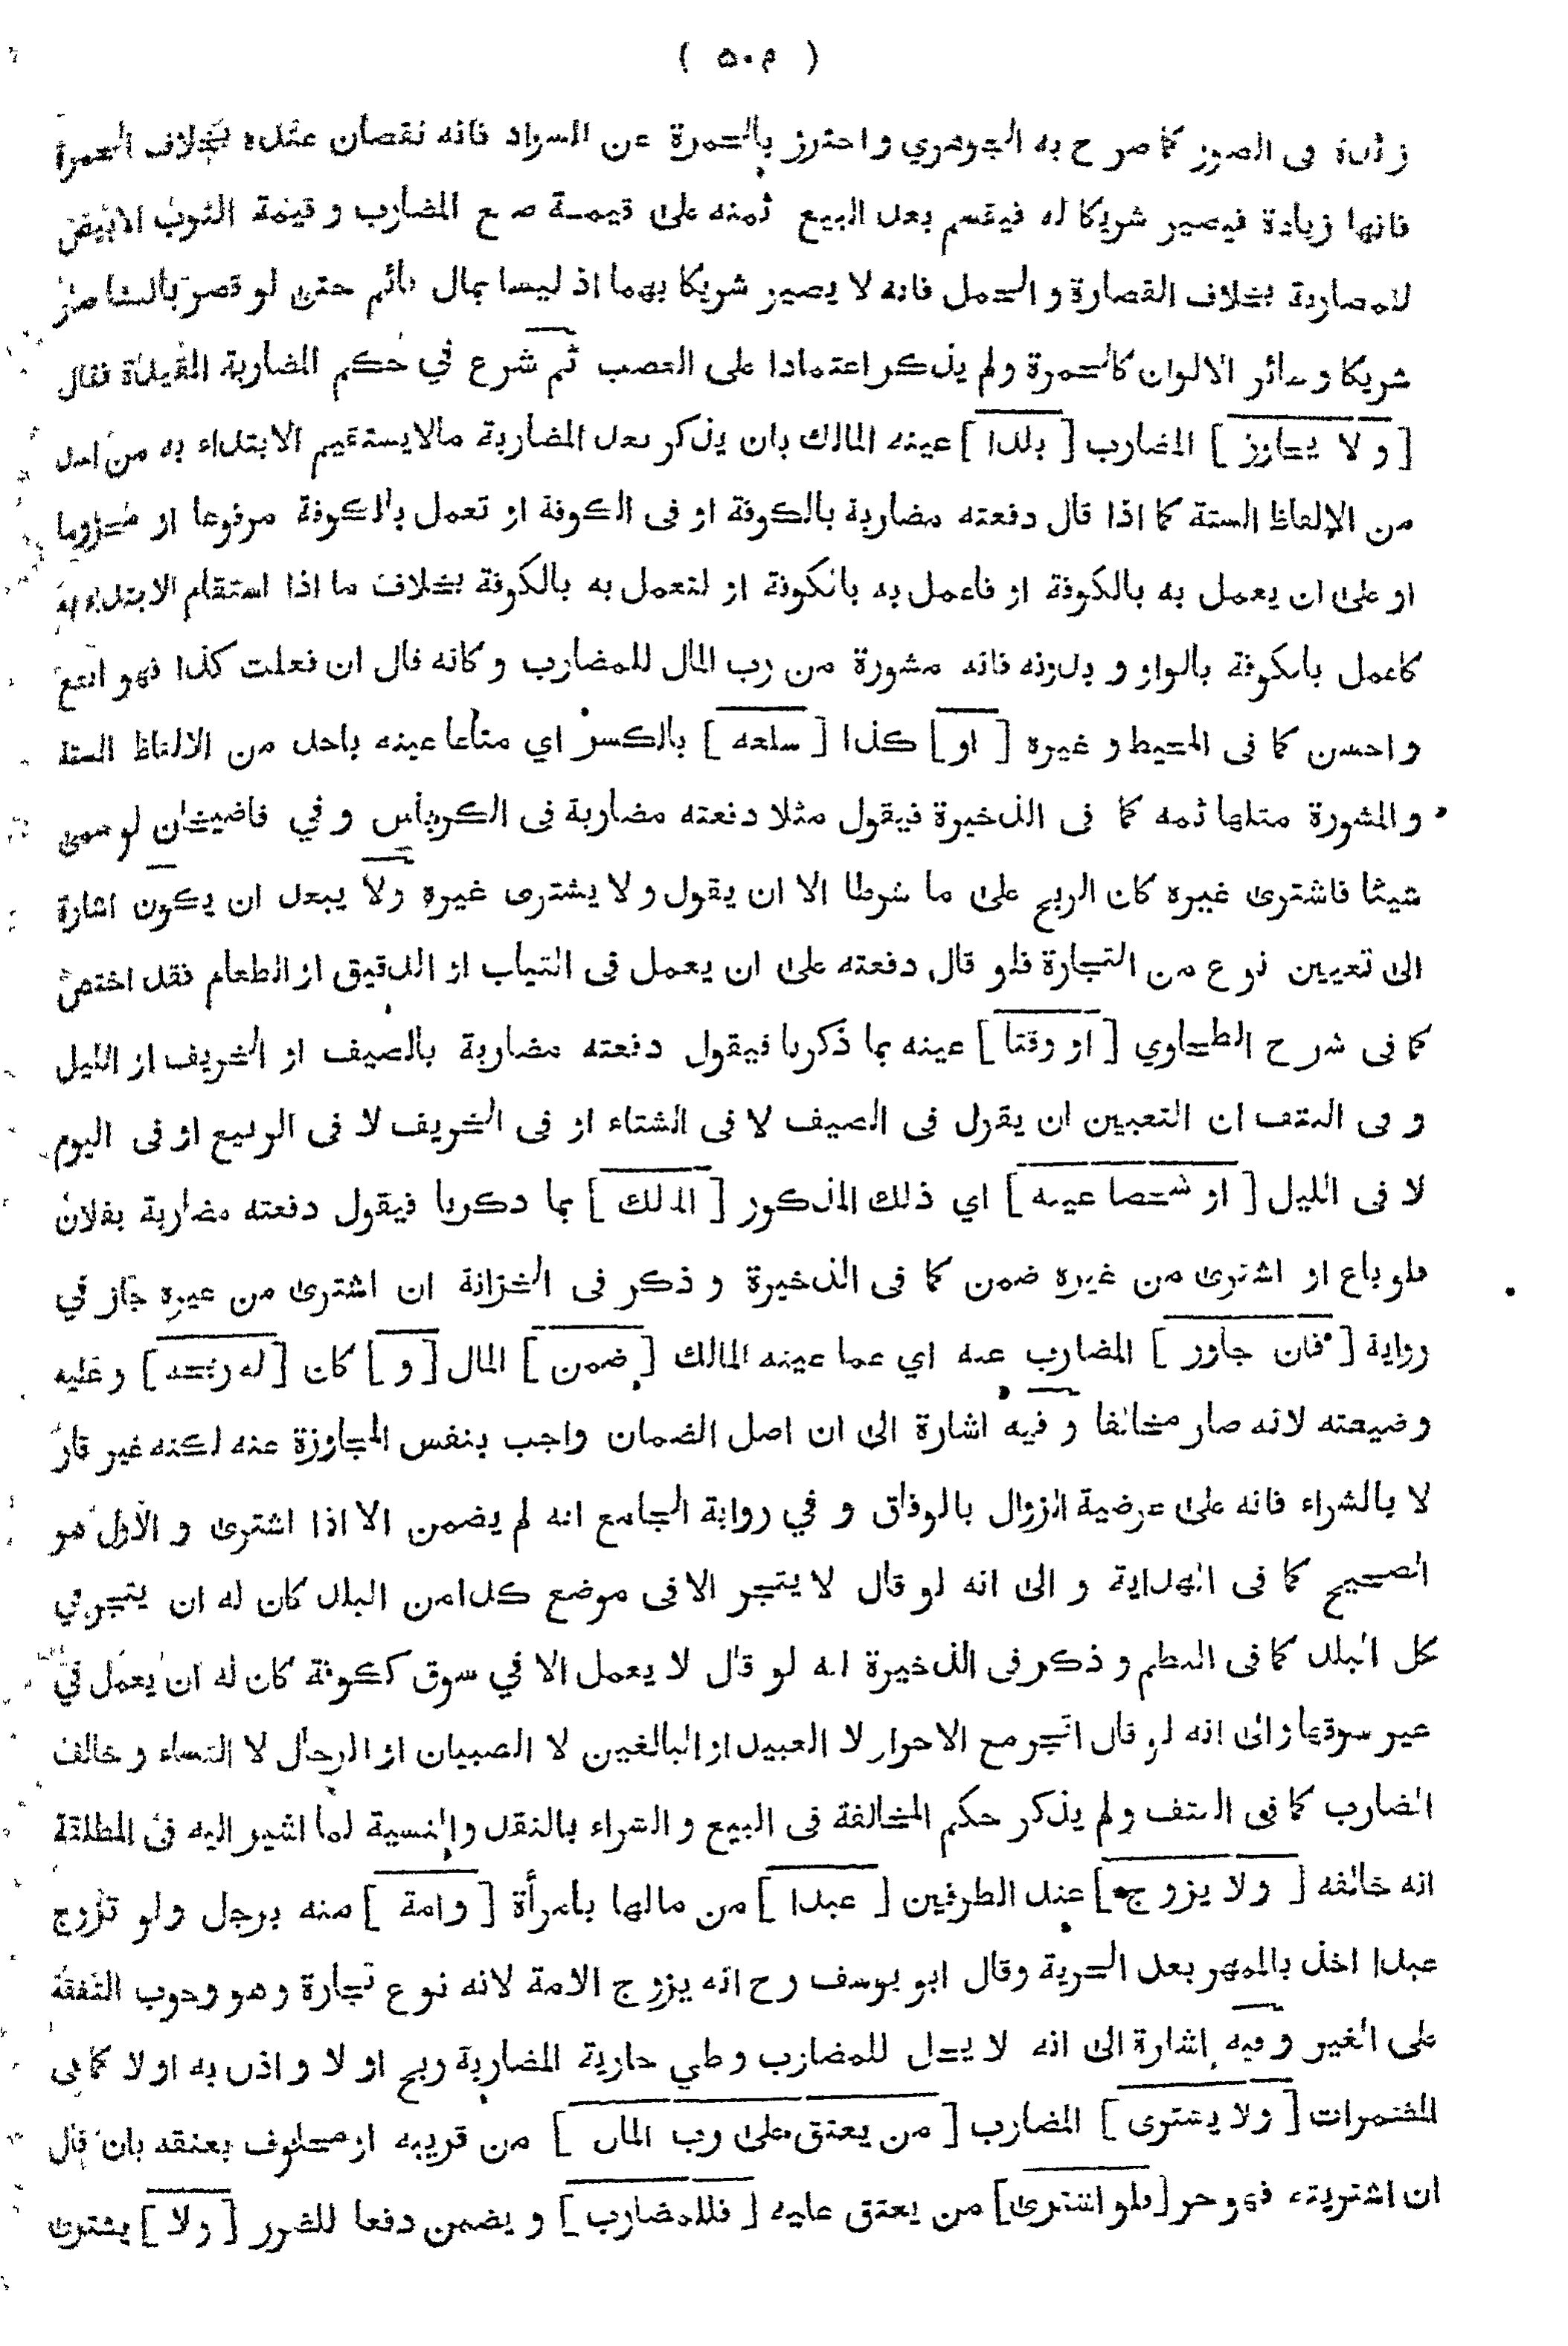 ( ٥٠٣ )
في الصور كما صرح به الجوهري و احترز بالحمرة عن السواد فانه نقصان عنده بخلاف الحمرة
فانها زيادة فيصير شريكا له فيقسم بعد البيع ثمنه على قيمة صبع المضارب و قيمة الثوب الابيض
للمضاربة بخلاف القصارة و الحمل فانه لا يصير شريكا بهما اذ ليسا بمال قائم حتى لو قصر بالنشا صار
شريكا و سائر الالوان كالحمرة ولم يذكر اعتمادا على الغصب ثم شرع في حكم المضاربة المقيدة فقال
[ و لا يجاوز ] المضارب [ بلدا ] عينه المالك بان يذكر بعد المضاربة مالايستقيم الابتداء به من احد
من الالفاظ الستة كما اذا قال دفعته مضاربة بالكوفة او فى الكوفة او تعمل بالكوفة مرفوعا او مجزوما
او على ان يعمل به بالكوفة او فاعمل به بالكوفة او لتعمل به بالكوفة بخلاف ما اذا استقام الابتداء به
كاعمل بالكوفة بالواو و بدونه فانه مشورة من رب المال للمضارب و كانه قال ان فعلت كذا فهو انفع
و احسن كما فى المحيط و غيره [ او ] كذا [ سلعه ] بالكسر اي متاعا عينه باحد من الالفاظ الستة
و المشورة مثلها ثمه كما فى الذخيرة فيقول مثلا دفعته مضاربة فى الكرباس و في قاضيخان لو سمى
شيئا فاشترى غيره كان الربح على ما شرطا الا ان يقول و لا يشترى غيره ولا يبعد ان يكون اشارة
الى تعيين نوع من التجارة فلو قال دفعته على ان يعمل فى الثياب او الدقيق او الطعام فقد اختص
كما فى شرح الطحاوي [ او وقتا ] عينه بما ذكرنا فيقول دفعته مضاربة بالصيف او الخريف او الليل
و فى النتف ان التعيين ان يقول فى الصيف لا فى الشتاء او فى الخريف لا فى الربيع او فى اليوم
لا فى الليل [ او شخصا عينه ] اي ذلك المذكور [ المالك ] بما ذكرنا فيقول دفعته مضاربة بفلان
فلو باع او اشترى من غيره ضمن كما فى الذخيرة و ذكر فى الخزانة ان اشترى من غيره جاز في
رواية [ فان جاوز ] المضارب عنه اي عما عينه المالك [ ضمن ] المال [ و ] كان [ له ربحه ] و عليه
وضيعته لانه صار مخالفا و فيه اشارة الى ان اصل الضمان واجب بنفس المجاوزة عنه لكنه غير قار
لا بالشراء فانه على عرضية الزوال بالوفاق و في رواية الجامع انه لم يضمن الا اذا اشترى و الاول هو
الصحيح كما فى الهداية و الى انه لو قال لا يتجر الا فى موضع كذا من البلد كان له ان يتجر في
كل البلد كما فى النظم و ذكر فى الذخيرة انه لو قال لا يعمل الا في سوق ككوفة كان له ان يعمل في
غير سوقها و الى انه لو قال اتجر مع الاحرار لا العبيد او البالغين لا الصبيان او الرجال لا النساء و خالف
المضارب كما فى النتف ولم يذكر حكم المخالفة فى البيع و الشراء بالنقد والنسية لما اشير اليه فى المطلقة
انه خالفه [ ولا يزوج ] عند الطرفين [ عبدا ] من مالها بامرأة [ وامة ] منه برجل ولو تزوج
عبدا اخذ بالمهر بعد الحرية وقال ابو يوسف رح انه يزوج الامة لانه نوع تجارة وهو وجوب النفقة
على الغير و فيه اشارة الى انه لا يحل للمضارب وطي جارية المضاربة ربح او لا و اذن به او لا كما فى
المضمرات [ ولا يشترى ] المضارب [ من يعتق على رب المال ] من قريبه او محلوف بعتقه بان قال
ان اشتريته فهو حر [ فلو اشترى ] من يعتق عليه [ فللمضارب ] و يضمن دفعا للضرر [ ولا ] يشترى